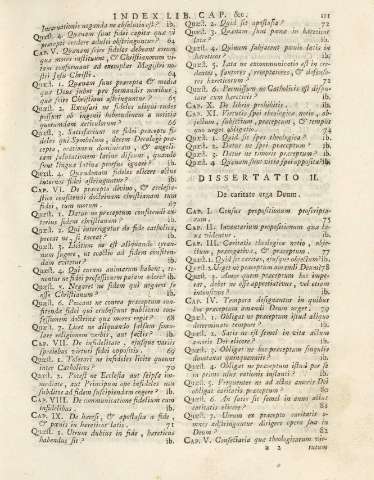 INDEX LIB. CAP. &c. 111
Quæst. 4. Quænam sint fidei capita quæ vi
præcepti credere adulti obstringantur? 64
CAP. V. Quænam scire fideles debeant eorum
quæ mores instituunt, & Christianorum vi-
tam conformant ad exemplar Magistri no-
stri Jesu Christi. 64
Quæst. 1. Quænam sint præcepta & media
quæ Deus jubet pro formandis moribus,
quæ scire Christiani astringuntur? 65
Quæst. 2. Excusari ne fideles aliquot rudes
possunt ob ingenii hebetudinem a notitia
quorumdam articulorum? 66
Quæst. 3. Satisfaciunt ne fidei præcepto fi-
deles qui Symbolum, decem Decalogi præ-
cepta, orationem dominicam, & angeli-
cam salutationem latine discunt, quando
sunt linguæ latinæ prorsus ignari? ib.
Quæst. 4. Quandonam fideles elicere actus
internos fidei astringantur? ib.
CAP. VI. De præcepto divino, & ecclesia-
stico constanti doctrinam christianam tum
fidei, tum morum. 67
Quæst. 1. Datur ne præceptum constitendi ex-
terius fidem christianam? ib.
Quæst. 2. Qui interrogatus de fide catholica,
peccat ne, si taceat? ib.
Quæst. 3. Licitum ne est aliquando tyran-
num fugere, ne raptus ad fidem constiten-
dam evitetur? ib.
Quæst. 4. Qui curam animarum habent, te-
nentur ne fidei professionem palam edere? ib.
Quæst. 5. Negant ne fidem qui negant se
esse Christianum? ib.
Quæst. 6. Peccant ne contra præceptum con-
fitendæ fidei qui erubescunt publicam con-
fessionem doctrinæ quæ mores regit? 68
Quæst. 7. Licet ne aliquando falsam simu-
lare religionem verbis, aut factis? ib.
CAP. VII. De infidelitate, ejusque variis
speciebus virtuti fidei oppositis. 69
Quæst. 1. Tolerari ne infideles licite queunt
inter Catholicos? 70
Quæst. 2. Potest ne Ecclesia aut seipsa im-
mediate, aut Principum ope infideles non
subditos ad fidem suscipiendam cogere? ib.
CAP. VIII. De communicatione fidelium cum
infidelibus. ib.
CAP. IX. De hæresi, & apostasia a fide,
& pœnis in hæreticos latis. 71
Quæst. 1. Utrum dubius in fide, hæreticus
habendus sit? ib.
Quæst. 2. Quid sit apostasia? 72
Quæst. 3. Quænam sunt pœnæ in hæreticos
latæ? ib.
Quæst. 4. Quinam subjaceant pœnis latis in
hæreticos? ib.
Quæst. 5. Lata ne excommunicatio est in cre-
dentes, fautores, receptatores, & defenso-
res hæreticorum? 72
Quæst. 6. Permissum ne Catholicis est dispu-
tare cum hæreticis? ib.
CAP. X. De libris prohibitis. ib.
CAP. XI. Virtutis spei theologicæ notio, ob-
jectum, subjectum, præceptum, & tempus
quo urget obligatio. 74
Quæst. 1. Quid sit spes theologica? ib.
Quæst. 2. Datur ne spei præceptum? ib.
Quæst. 3. Datur ne timoris præceptum? ib.
Quæst. 4. Quænam sunt vitia spei opposita? ib.
DISSERTATIO II.
De caritate erga Deum.
CAP. I. Census propositionum proscripta-
rum. 75
CAP. II. Inventarium propositionum quæ la-
xæ videntur. ib.
CAP. III. Caritatis theologicæ notio, obje-
ctum, prærogativæ, & præceptum. 77
Quæst. 1. Quid sit caritas, ejusque objectum? ib.
Quæst. 2. Urget ne præceptum amandi Deum? 78
Quæst. 3. Amor quem præceptum hoc impe-
rat, debet ne esse appretiativus, vel etiam
intensivus? ib.
CAP. IV. Tempora designantur in quibus
hoc præceptum amandi Deum urget. 79
Quæst. 1. Obligat ne præceptum istud aliquo
determinato tempore? ib.
Quæst. 2. Satis ne est semel in vita actum
amoris Dei elicere? ib.
Quæst. 3. Obligat ne hoc præceptum singulis
duntaxat quinquenniis? ib.
Quæst. 4. Obligat ne præceptum istud per se
in primo usus rationis instanti? ib.
Quæst. 5. Frequenter ne ad actus amoris Dei
obligat caritatis præceptum? 80
Quæst. 6. An satis sit semel in anno actus
caritatis elicere? 81
Quæst. 7. Utrum ex præcepto caritatis o-
mnes adstringantur dirigere opera sua in
Deum? 82
CAP. V. Consectaria quæ theologicarum vir-
a 2 tutum